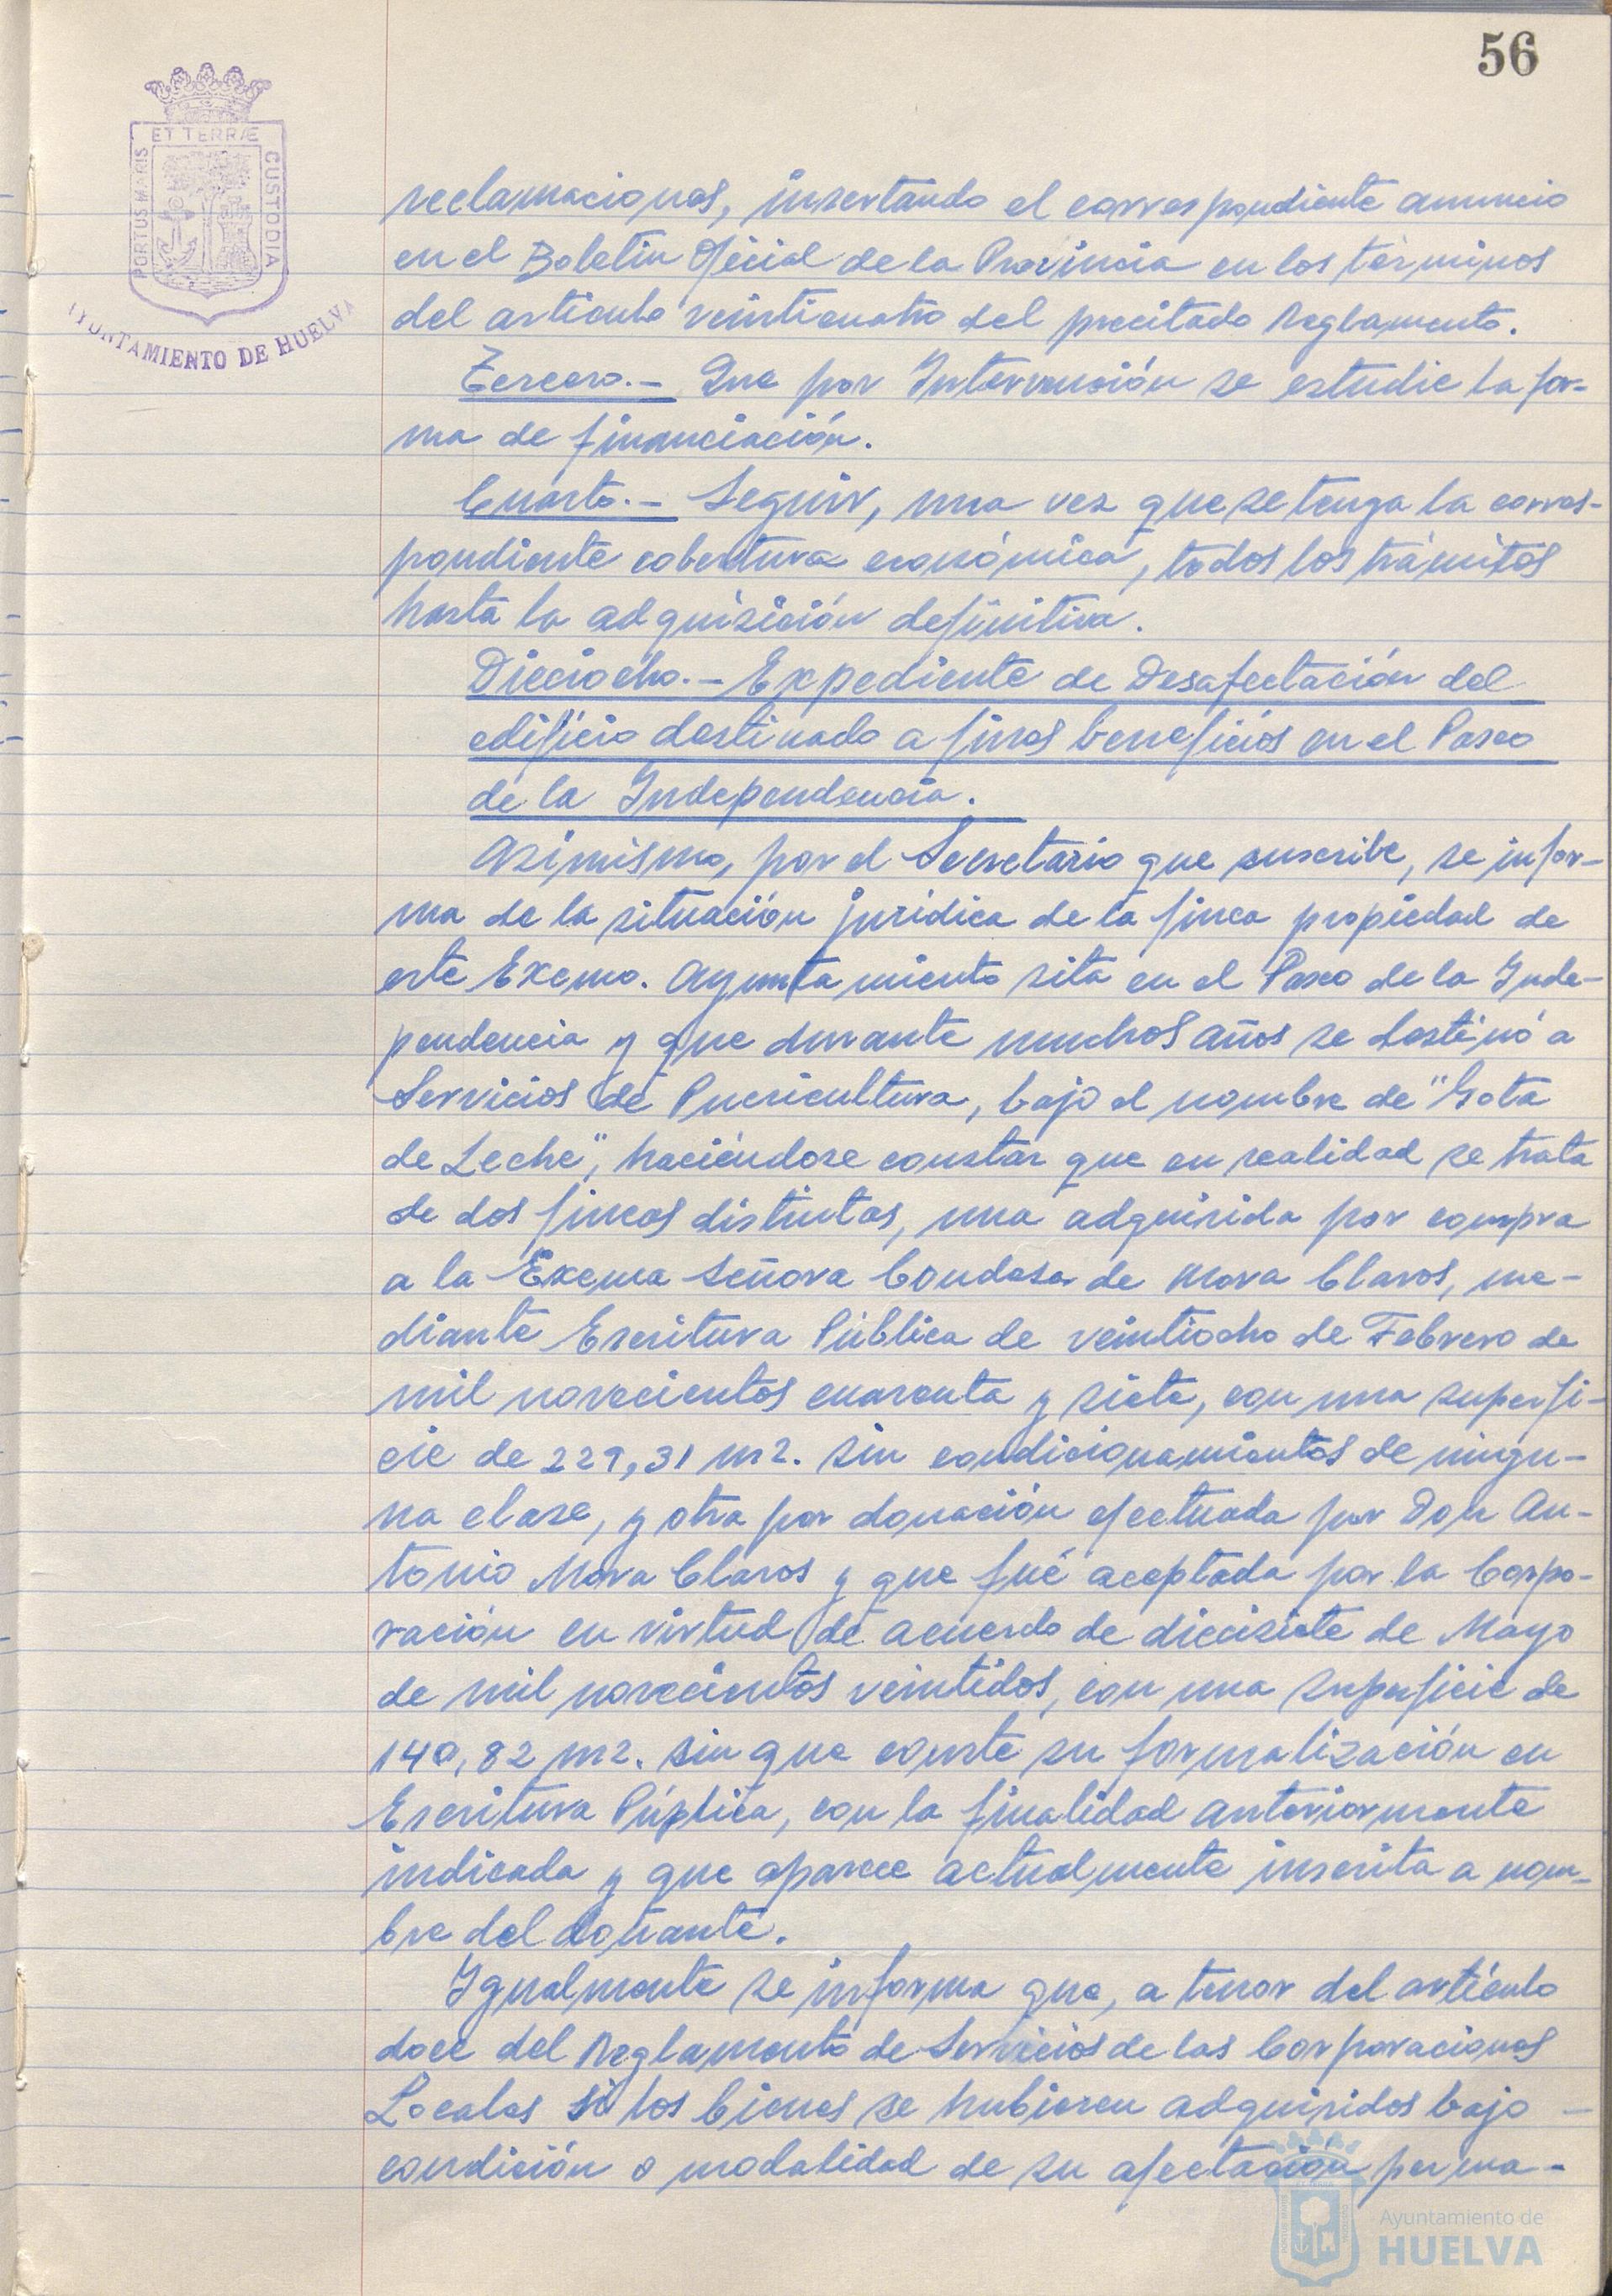 56
ET TERRÆ
PORTUS MARIS
CUSTODIA
AYUNTAMIENTO DE HUELVA
reclamaciones, insertando el correspondiente anuncio
en el Boletin Oficial de la Provincia en los términos
del articulo veinticuatro del precitado Reglamento.
Tercero.- Que por Intervención se estudie la for-
ma de financiación.
Cuarto.- Seguir, una vez que se tenga la corres-
pondiente cobertura económica, todos los trámites
hasta la adquisición definitiva.
Dieciocho.- Expediente de Desafectación del
edificio destinado a fines beneficios en el Paseo
de la Independencia.
Asimismo, por el Secretario que suscribe, se infor-
ma de la situación jurídica de la finca propiedad de
este Excmo. Ayuntamiento sita en el Paseo de la Inde-
pendencia y que durante muchos años se destinó a
Servicios de Puericultura, bajo el nombre de "Gota
de Leche", haciéndose constar que en realidad se trata
de dos fincas distintas, una adquirida por compra
a la Excma Señora Condesa de Mora Claros, me-
diante Escritura Pública de veintiocho de Febrero de
mil novecientos cuarenta y siete, con una superfi-
cie de 229,31 m2. sin condicionamientos de ningu-
na clase, y otra por donación efectuada por Don An-
tonio Mora Claros y que fué aceptada por la Corpo-
ración en virtud de acuerdo de diecisiete de Mayo
de mil novecientos veintidos, con una superficie de
140,82 m2. sin que conste su formalización en
Escritura Pública, con la finalidad anteriormente
indicada y que aparece actualmente inscrita a nom-
bre del donante.
Igualmente se informa que, a tenor del artículo
doce del Reglamento de Servicios de las Corporaciones
Locales si los bienes se hubieren adquiridos bajo -
condición o modalidad de su afectación perma-
Ayuntamiento de
HUELVA